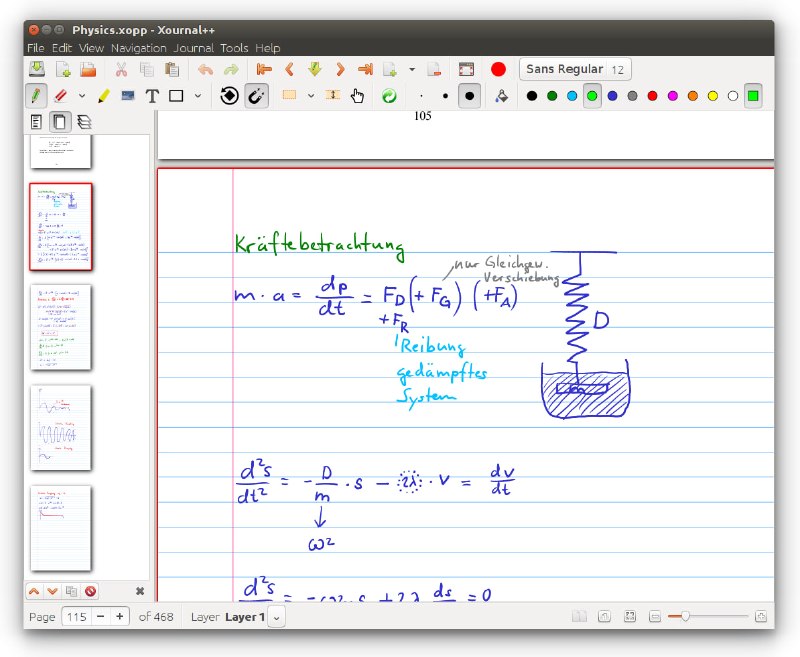 Physics.xopp - Xournal++
File Edit View Navigation Journal Tools Help
Sans Regular 12
105
Kräftebetrachtung
nur Gleichgew.
Verschiebung
m · a = dp/dt = F_D (+ F_G) (+F_A)
+ F_R
Reibung
gedämpftes
System
D
d²s/dt² = - D/m · s - 2λ · v = dv/dt
↓
ω²
d²s = -ω² · s + 2λ ds = 0
Page 115 − + of 468 Layer Layer 1